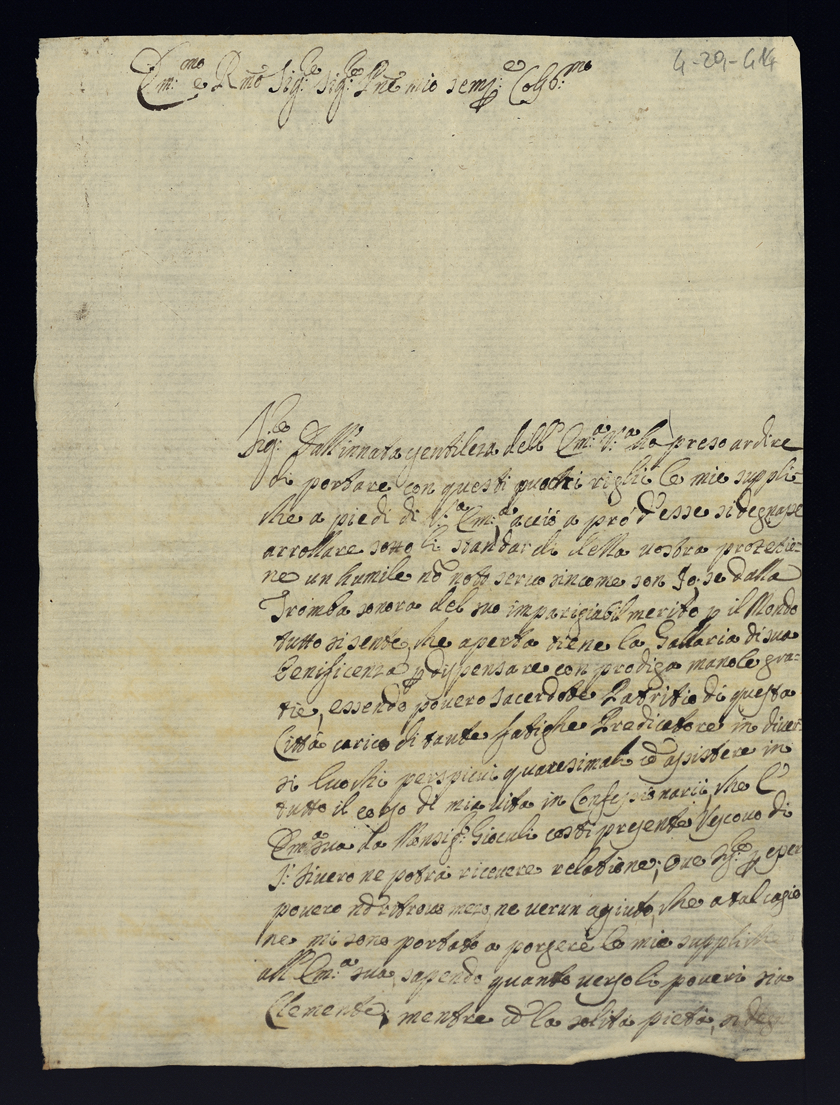 4-29-414
Em:mo e Rmo Sig:e Sig:e Pne mio semp:e Col6:mo
Sig:e Dall'innata gentileza dell' Em:a V:a ho preso ardire
di portare con questi puochi righi le mie suppli=
che a piedi di V:a Em:a acciò a prò d'esse si degnase
arrollare sotto li standardi della vostra protetio=
ne un humile nō noto servo sincome son Io, se dalla
Tromba sonora del suo imparigiabil merito p il Mondo
tutto si sente, che aperta tiene la Gallaria di sua
benificenza p dispensare con prodiga mano le gra=
tie, essendo povero sacerdote Patritio di questa
Città carico di tante fatighe Predicatore in diver=
si luochi perspicui quaresimali ed assistere in
tutto il corso di mia vita in Confessionarii, che l'
Em:a sua da Monsig:r Gioculi costì presente Vescovo di
S: Severo ne potrà ricevere relatione; Ove p esser
povero nō ritrovo mezo, ne verun agiuto, che a tal cagio
ne mi sono portato a porgere le mie suppliche
all' Em:a sua, sapendo quanto verso li poveri sia
Clemente; mentre cō la solita pietà, si